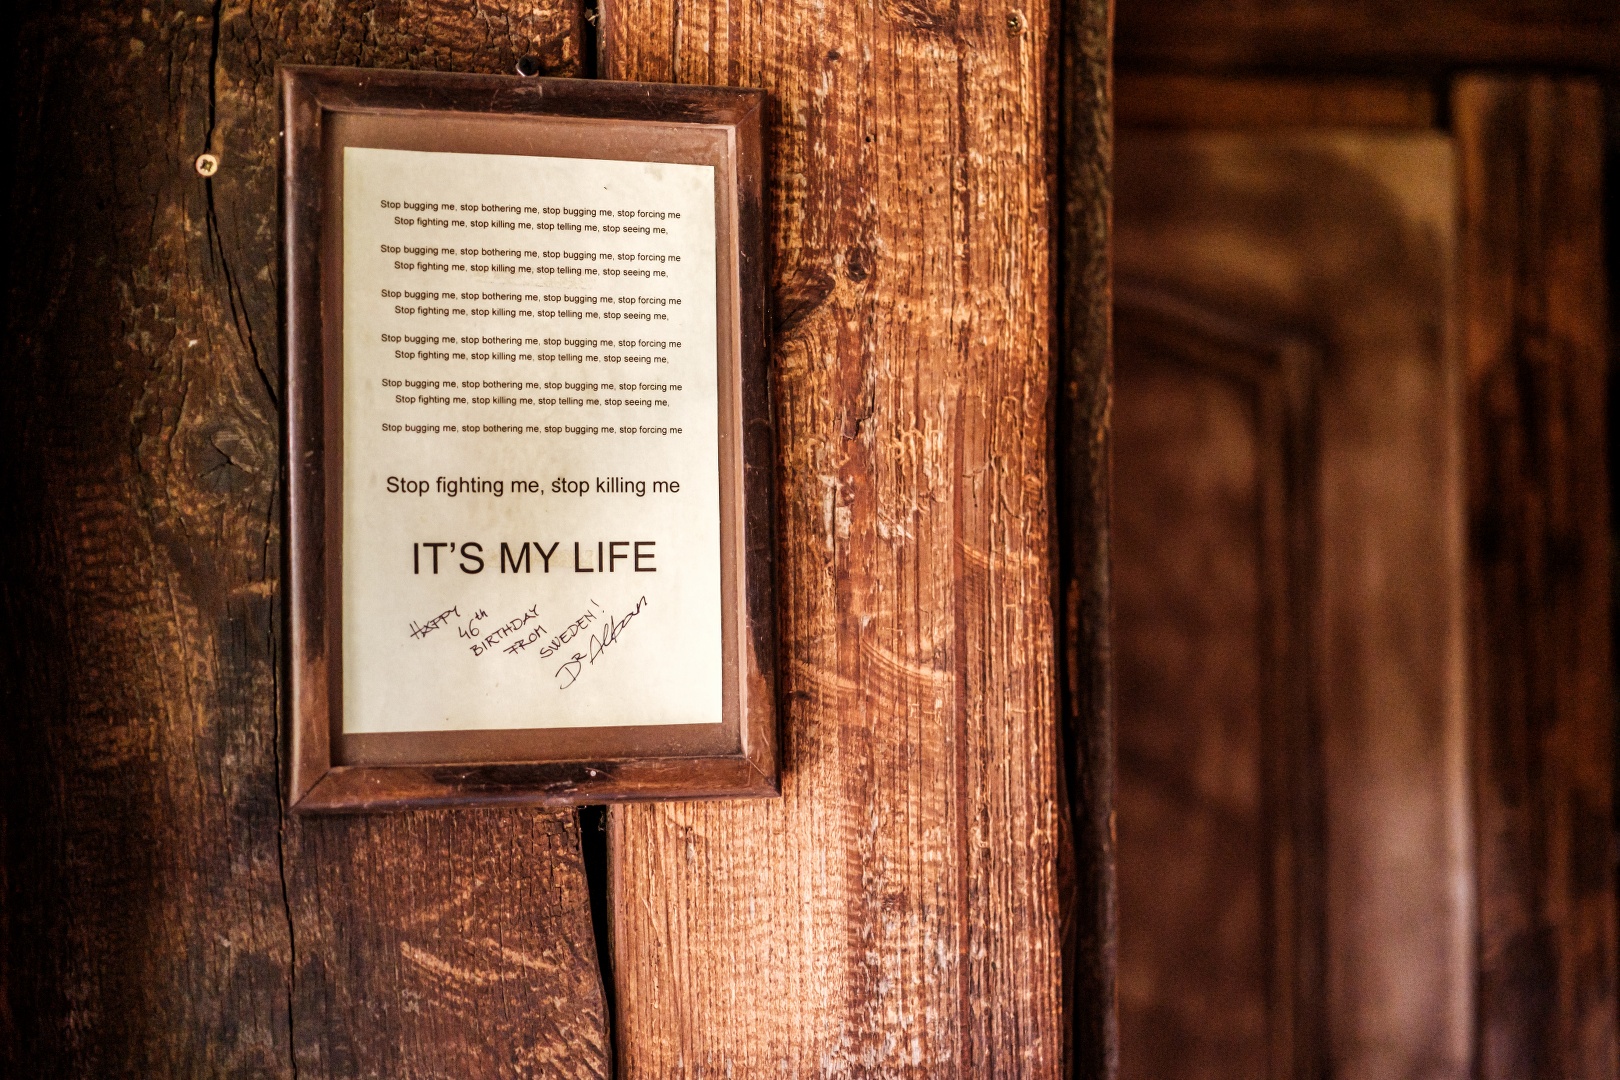 Stop bugging me, stop bothering me, stop bugging me, stop forcing me
Stop fighting me, stop killing me, stop telling me, stop seeing me,
Stop bugging me, stop bothering me, stop bugging me, stop forcing me
Stop fighting me, stop killing me, stop telling me, stop seeing me,
Stop bugging me, stop bothering me, stop bugging me, stop forcing me
Stop fighting me, stop killing me, stop telling me, stop seeing me,
Stop bugging me, stop bothering me, stop bugging me, stop forcing me
Stop fighting me, stop killing me, stop telling me, stop seeing me,
Stop bugging me, stop bothering me, stop bugging me, stop forcing me
Stop fighting me, stop killing me, stop telling me, stop seeing me,
Stop bugging me, stop bothering me, stop bugging me, stop forcing me
Stop fighting me, stop killing me
IT'S MY LIFE
HAPPY
46th
BIRTHDAY
FROM
SWEDEN!
Dr Alban